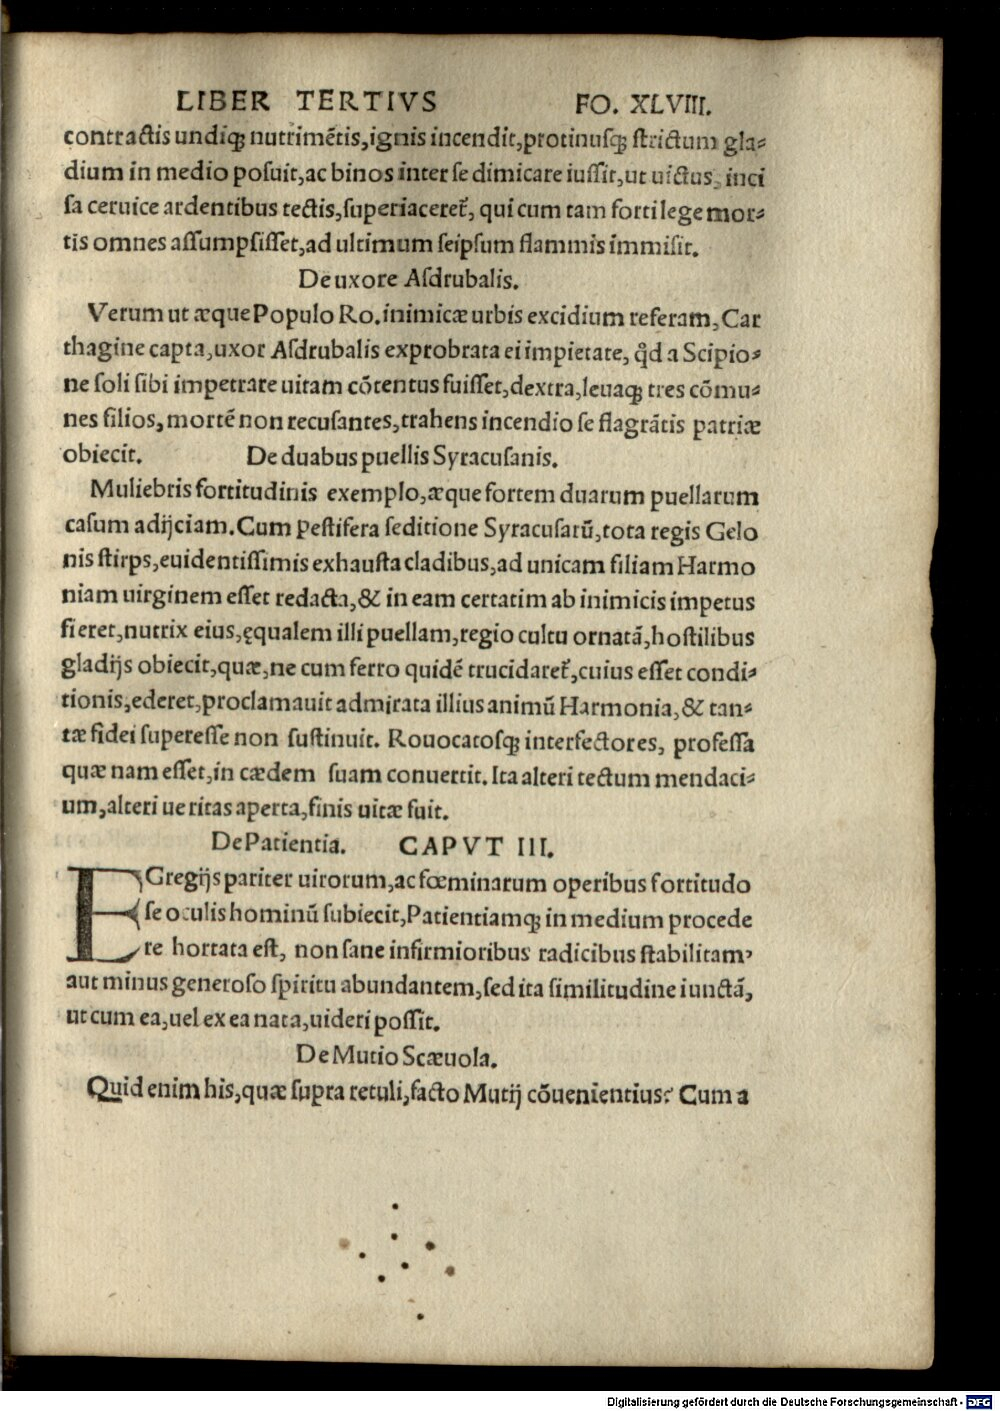 LIBER TERTIVS FO. XLVIII.
contractis undiqꝫ nutrimētis,ignis incendit,protinusqꝫ strictum gla⸗
dium in medio posuit,ac binos inter se dimicare iussit,ut uictus, inci
sa ceruice ardentibus tectis,superiaceret᷑, qui cum tam forti lege mor⸗
tis omnes assumpsisset,ad ultimum seipsum flammis immisit.
De uxore Asdrubalis.
Verum ut æque Populo Ro.inimicæ urbis excidium referam, Car
thagine capta,uxor Asdrubalis exprobrata ei impietate, qd̓ a Scipio⸗
ne soli sibi impetrare uitam cōtentus fuisset,dextra,leuaqꝫ tres cōmu⸗
nes filios, mortē non recusantes,trahens incendio se flagrātis patriæ
obiecit. De duabus puellis Syracusanis.
Muliebris fortitudinis exemplo,æque fortem duarum puellarum
casum adijciam.Cum pestifera seditione Syracusarū,tota regis Gelo
nis stirps,euidentissimis exhausta cladibus,ad unicam filiam Harmo
niam uirginem esset redacta,& in eam certatim ab inimicis impetus
fieret,nutrix eius,ęqualem illi puellam,regio cultu ornatā,hostilibus
gladijs obiecit,quæ,ne cum ferro quidē trucidaret᷑,cuius esset condi⸗
tionis,ederet,proclamauit admirata illius animū Harmonia,& tan⸗
tæ fidei superesse non sustinuit. Rouocatosqꝫ interfectores, professa
quæ nam esset,in cædem suam conuertit. Ita alteri tectum mendaci⸗
um,alteri ueritas aperta,finis uitæ fuit.
De Patientia. CAPVT III.
EGregijs pariter uirorum,ac fœminarum operibus fortitudo
se oculis hominū subiecit,Patientiamqꝫ in medium procede
re hortata est, non sane infirmioribus radicibus stabilitam,
aut minus generoso spiritu abundantem,sed ita similitudine iunctā,
ut cum ea,uel ex ea nata,uideri possit.
De Mutio Scæuola.
Quid enim his,quæ supra retuli,facto Mutij cōuenientius? Cum a
Digitalisierung gefördert durch die Deutsche Forschungsgemeinschaft - DFG